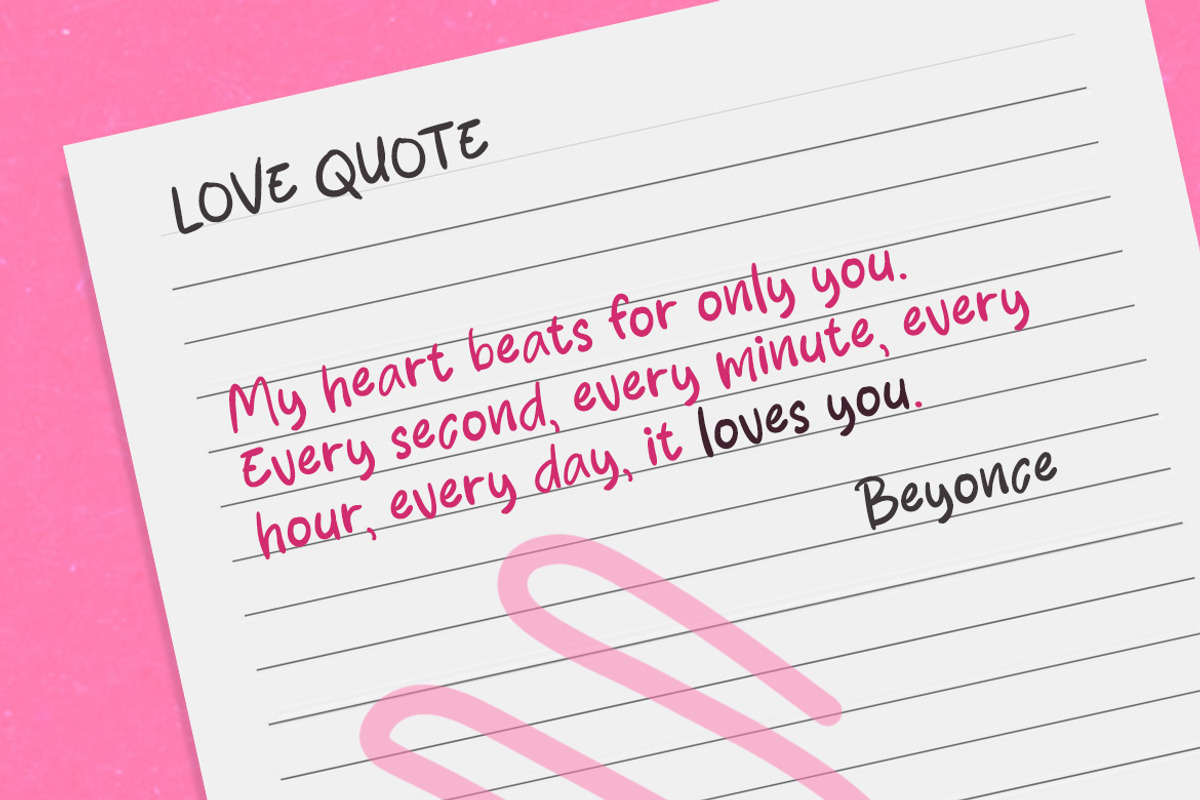 LOVE QUOTE
My heart beats for only you.
Every second, every minute, every
hour, every day, it loves you.
Beyonce